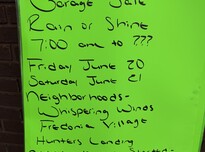 Garage Sale
Rain or Shine
7:00 am to ???
Friday June 20
Saturday June 21
Neighborhoods-
Whispering Winds
Fredonia Village
Hunters Landing